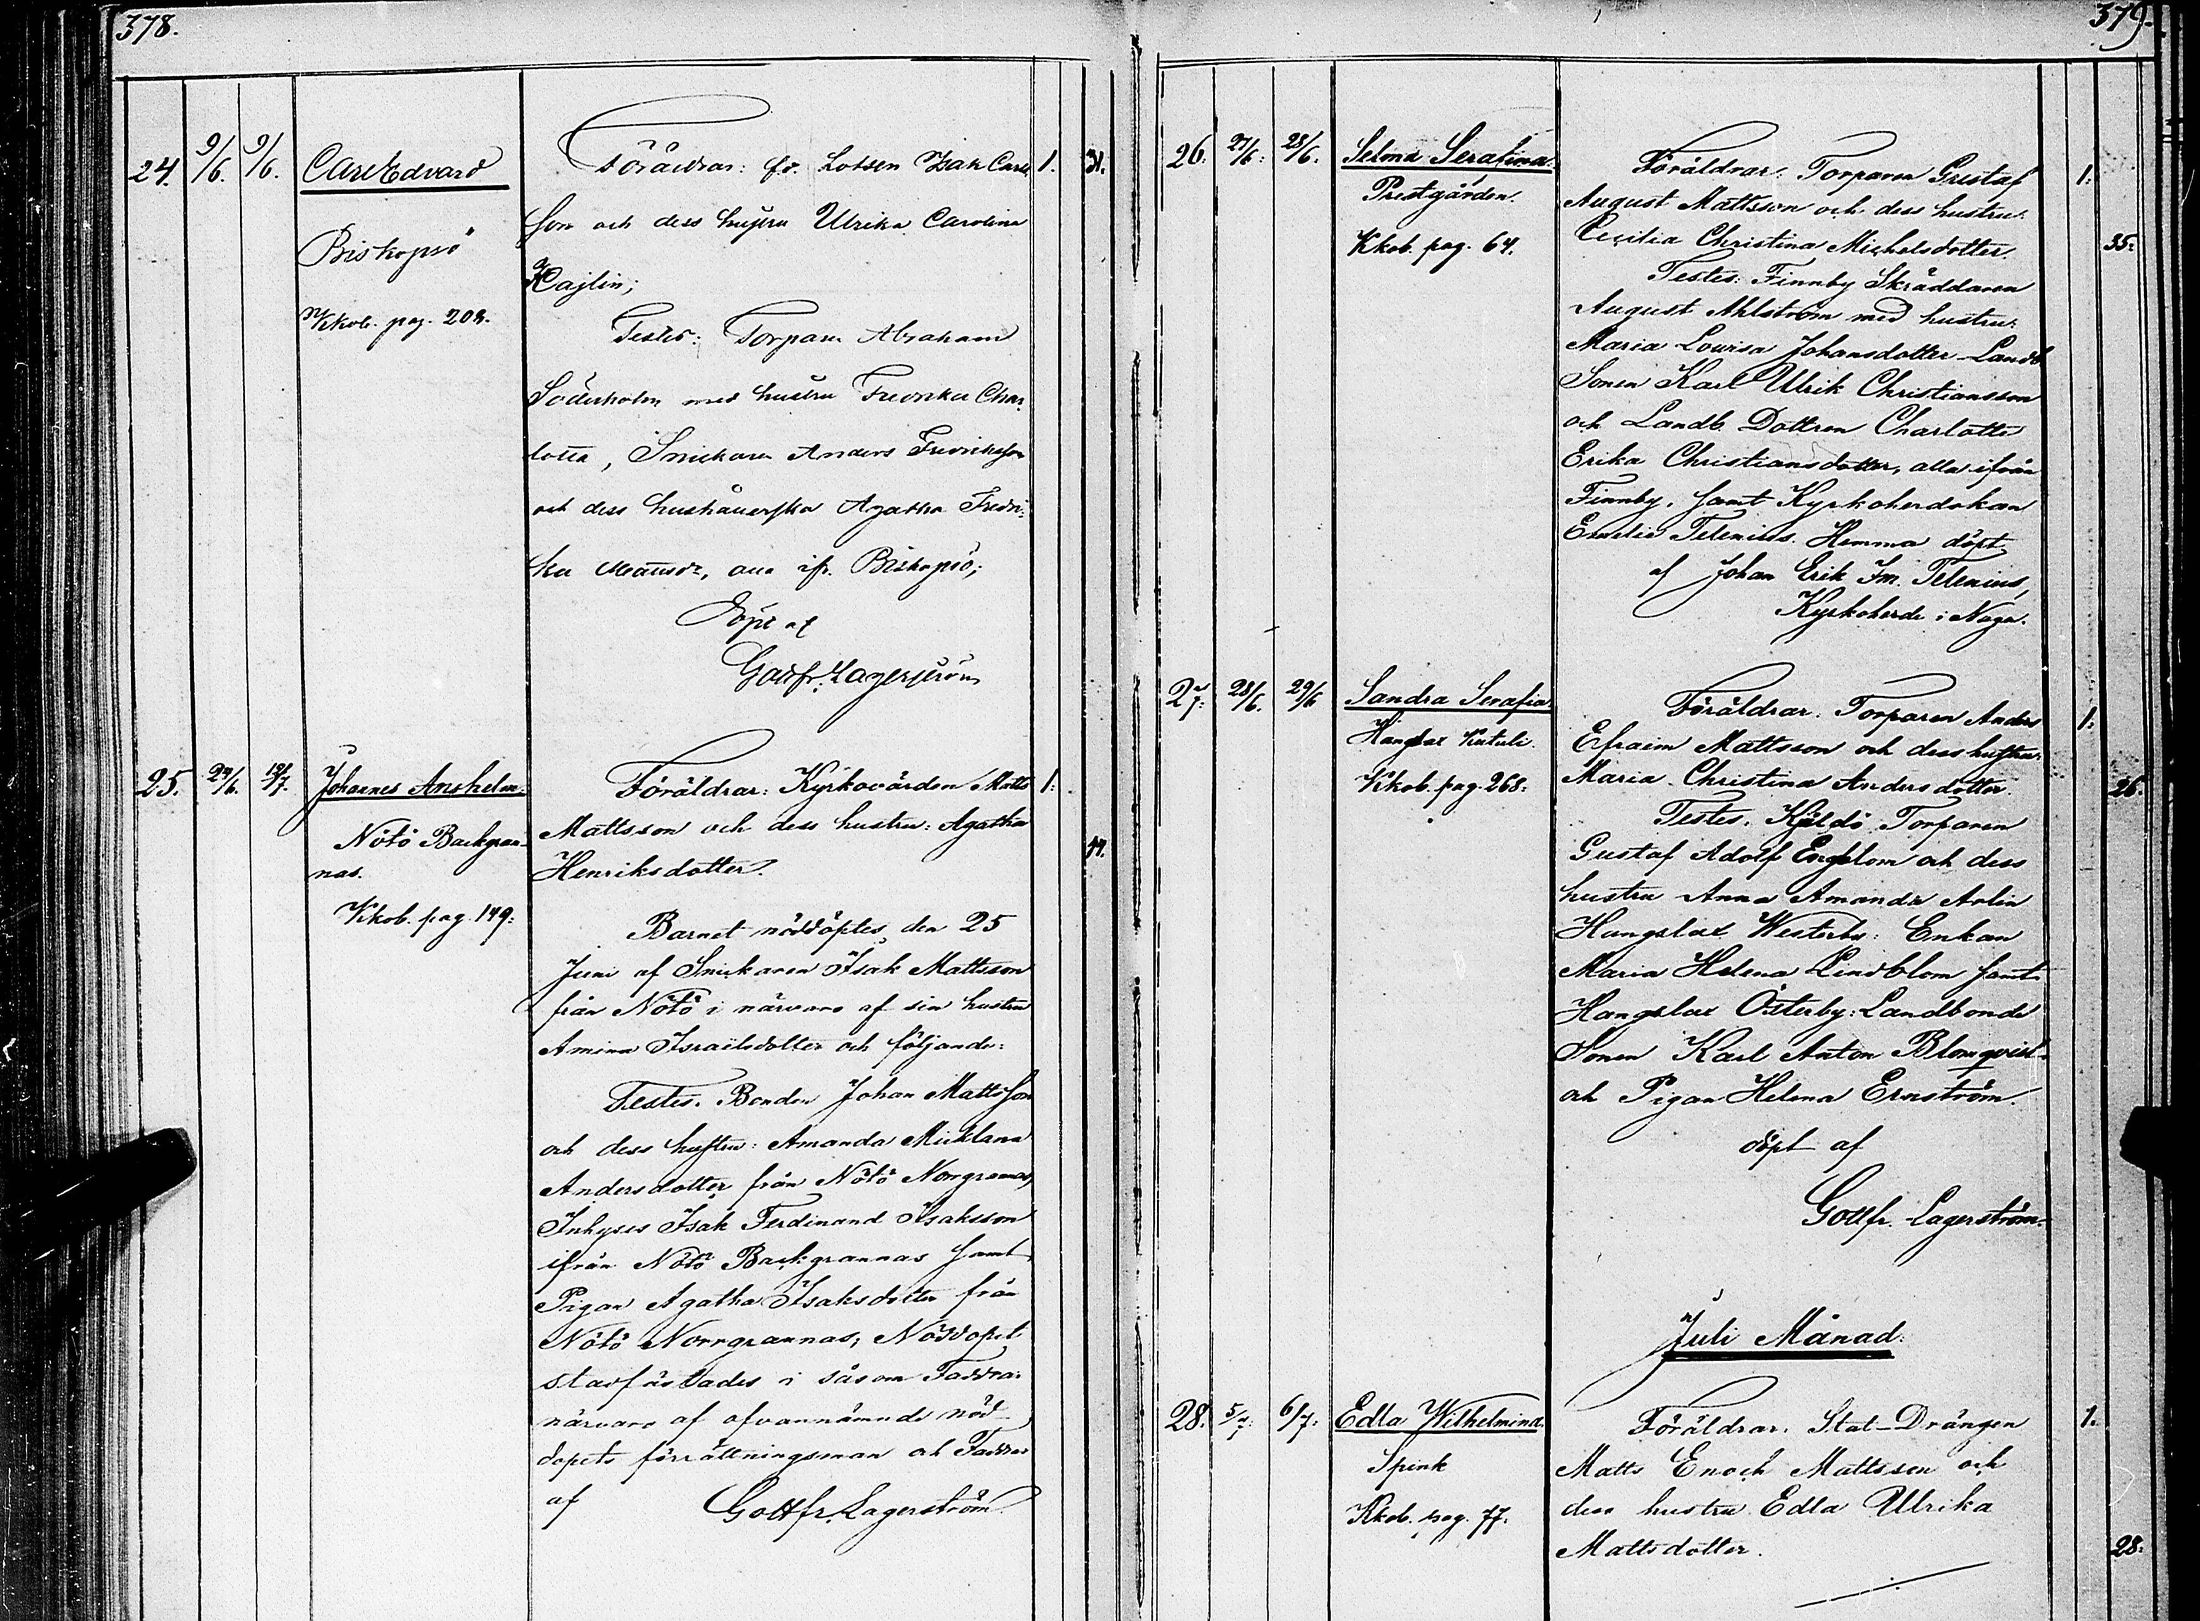 378.
24. 9/6. 9/6. Carl Edvard
Biskopsö
Kkob. pag. 208.
Föräldrar: fr. Lotsen Isak Carls 1.
son och dess hustru Ulrika Carolina
Kajlin;
31.
Testes: Torparen Abraham
Söderholm med hustru Fredrika Char
lotta, Snickaren Anders Fredriksson
och dess hushållerska Agatha Fredri:
ka Mattsdr, alla ifr. Biskopsö;
Döpt af
Gottfr. Lagerström
25. 24/6. 12/7. Johannes Anshelm.
Nötö Backgran-
nas.
Kkob. pag. 149:
Föräldrar: Kyrkovärden Matts 1:
Mattsson och dess hustru: Agatha
Henriksdotter.
44.
Barnet nöddöptes den 25
Juni af Snickaren Isak Mattsson
från Nötö i närvaro af sin hustru
Amina Israelsdotter och följande:
Testes. Bonden Johan Mattsson
och dess hustru: Amanda Micklana
Andersdotter från Nötö Norrgrannas,
Inhyses Isak Ferdinand Isaksson
ifrån Nötö Backgrannas samt
Pigan Agatha Isaksdotter från
Nötö Norrgrannas, Nöddopet
stadfästades i såsom Faddrar
närvaro af ofvannämnde nöd-
dopets förrättningsman och Faddrar
af Gottfr. Lagerström.
379.
26. 27/6: 28/6. Selma Serafina.
Prestgården.
Kkob. pag. 64.
Föräldrar: Torparen Gustaf 1:
August Mattsson och dess hustru:
Cecilia Christina Michelsdotter.
35:
Testes: Finnby Skräddaren
August Ahlström med hustru:
Maria Lovisa Johansdotter Landb
Sonen Karl Ulrik Christiansson
och Landb Dottren Charlotta
Erika Christiansdotter, alla ifrån
Finnby, samt Kyrkoherdskan
Emelie Telenius. Hemma döpt
af Johan Erik Im. Telenius,
Kyrkoherde i Nagu.
27: 28/6. 29/6 Sandra Serafia.
Hangslax Kutuli.
Kkob. pag. 268:
Föräldrar: Torparen Anders 1:
Efraim Mattsson och dess hustru:
Maria Christina Andersdotter.
26.
Testes. Käldö Torparen
Gustaf Adolf Engblom och dess
hustru Anna Amanda Arlin
Hangslax Westerby: Enkan
Maria Helena Lindblom samt
Hangslax Österby: Landbonde
Sonen Karl Anton Blomqvist
och Pigan Helena Ernström.
döpt af
Gottfr. Lagerström.
Juli Månad.
28. 5/7: 6/7: Edla Wilhelmina.
Spink
Kkob. pag. 77.
Föräldrar. Stat-Drängen 1.
Matts Enoch Mattsson och
dess hustru Edla Ulrika
Mattsdotter.
28: